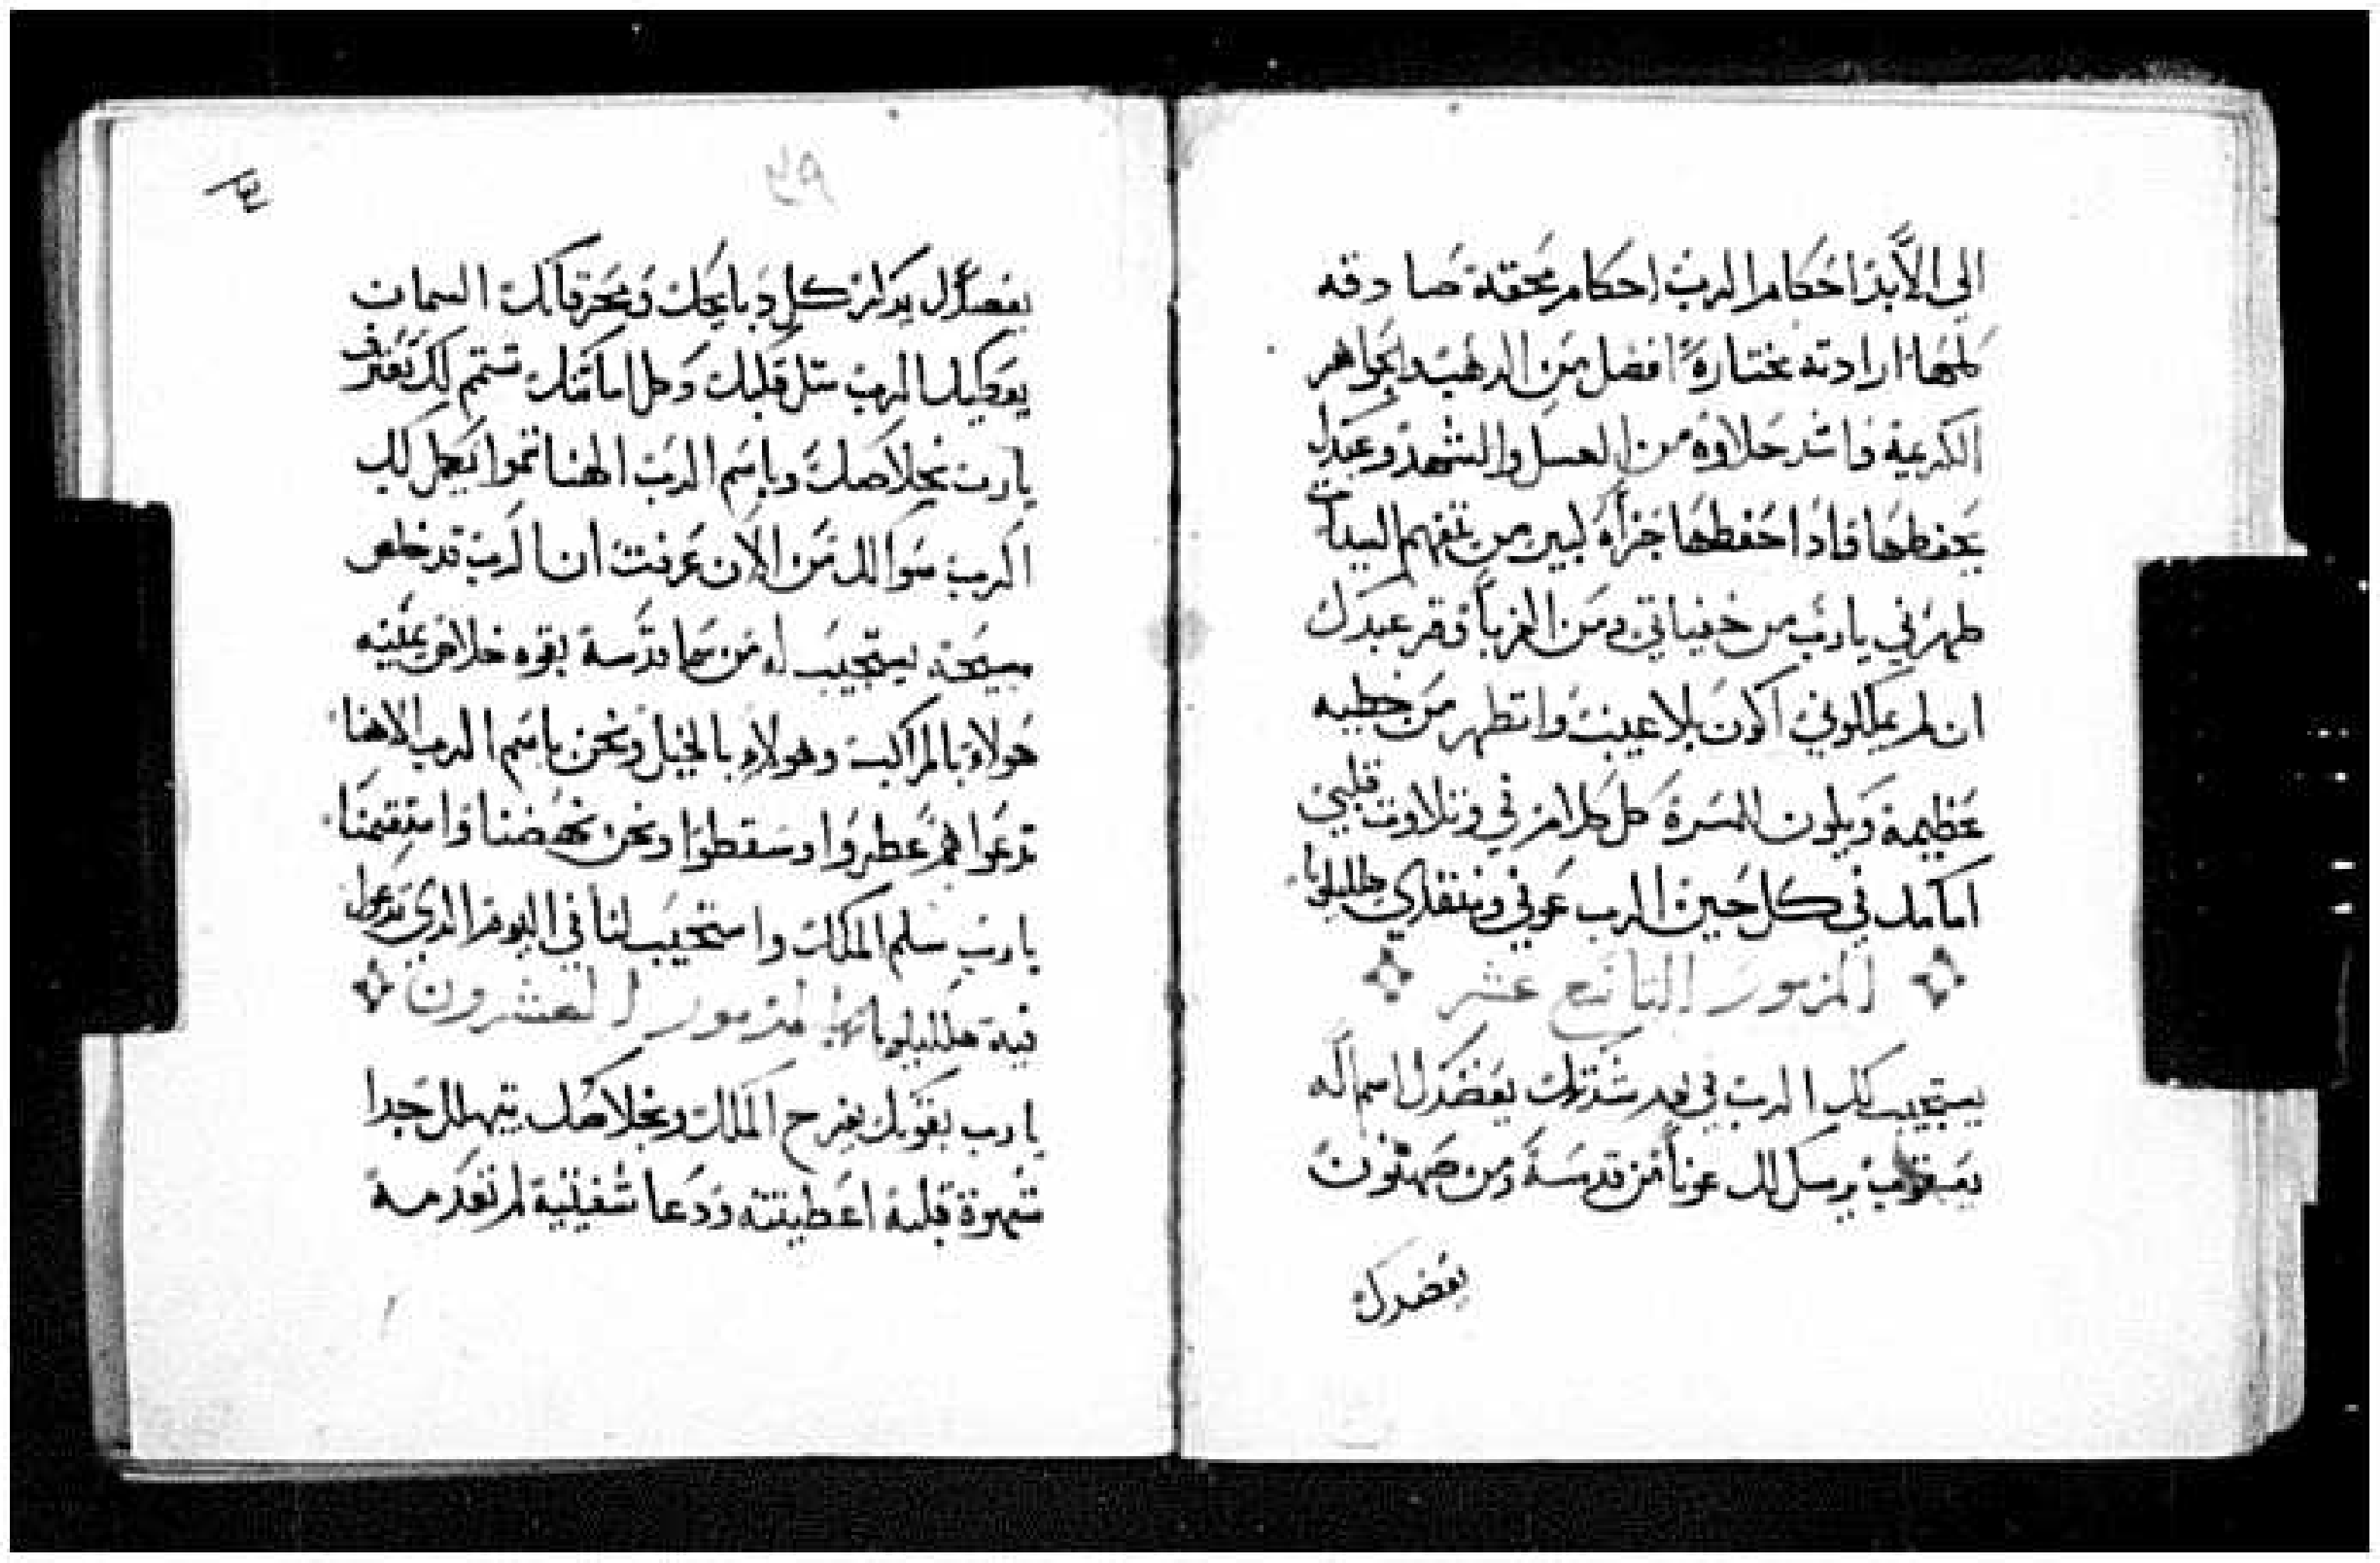 الى الأبد احكام الرب احكام محقة صادقه
كلها ارادته مختارة افضل من الدهب والجواهر
الكريمة واشد حلاوة من العسل والشهد وعبدك
يحفظها فادا حفظها جزاه كبير من يتفهم السيات
طهرني يارب من خفياتي ومن الغربا وقر عبدك
ان لم يملكوني اكون بلا عيب واتطهر من خطيه
عظيمة ويكون المسرة كل كلام في وتلاوت قلبي
امامك في كل حين الرب عوني ومنقدي هلليلويا
المزمور التاسع عشر
يستجيب لك الرب في يوم شدتك يعضدك اسم اله
يعقوب يرسل لك عونا من قدسه ومن صهيون
يعضدك
٢٩
يعضدك يدكر كل دبايحك ومحرقاتك السمان
يعطيك الرب مثل قلبك وكل امانتك تستتم لك نعترف
يارب بخلاصك وباسم الرب الهنا تموا يكمل لك
الرب سوالك من الان عرفت ان الرب قد خلص
مسيحه يستجيب له من سما قدسه بقوه خلاص يمينه
هولاء بالمراكب وهولاء بالخيل ونحن باسم الرب الاهنا
ندعوا هم عطروا وسقطوا ونحن نهضنا واستقمنا
يارب سلم الملك واستجيب لنا في اليوم الدي ندعوك
فيه هلليلويا المزمور العشرون
يارب بقوتك يفرح الملك وبخلاصك يتهلل جدا
شهوة قلبه اعطيته ودعا شفتيه لم تعدمه